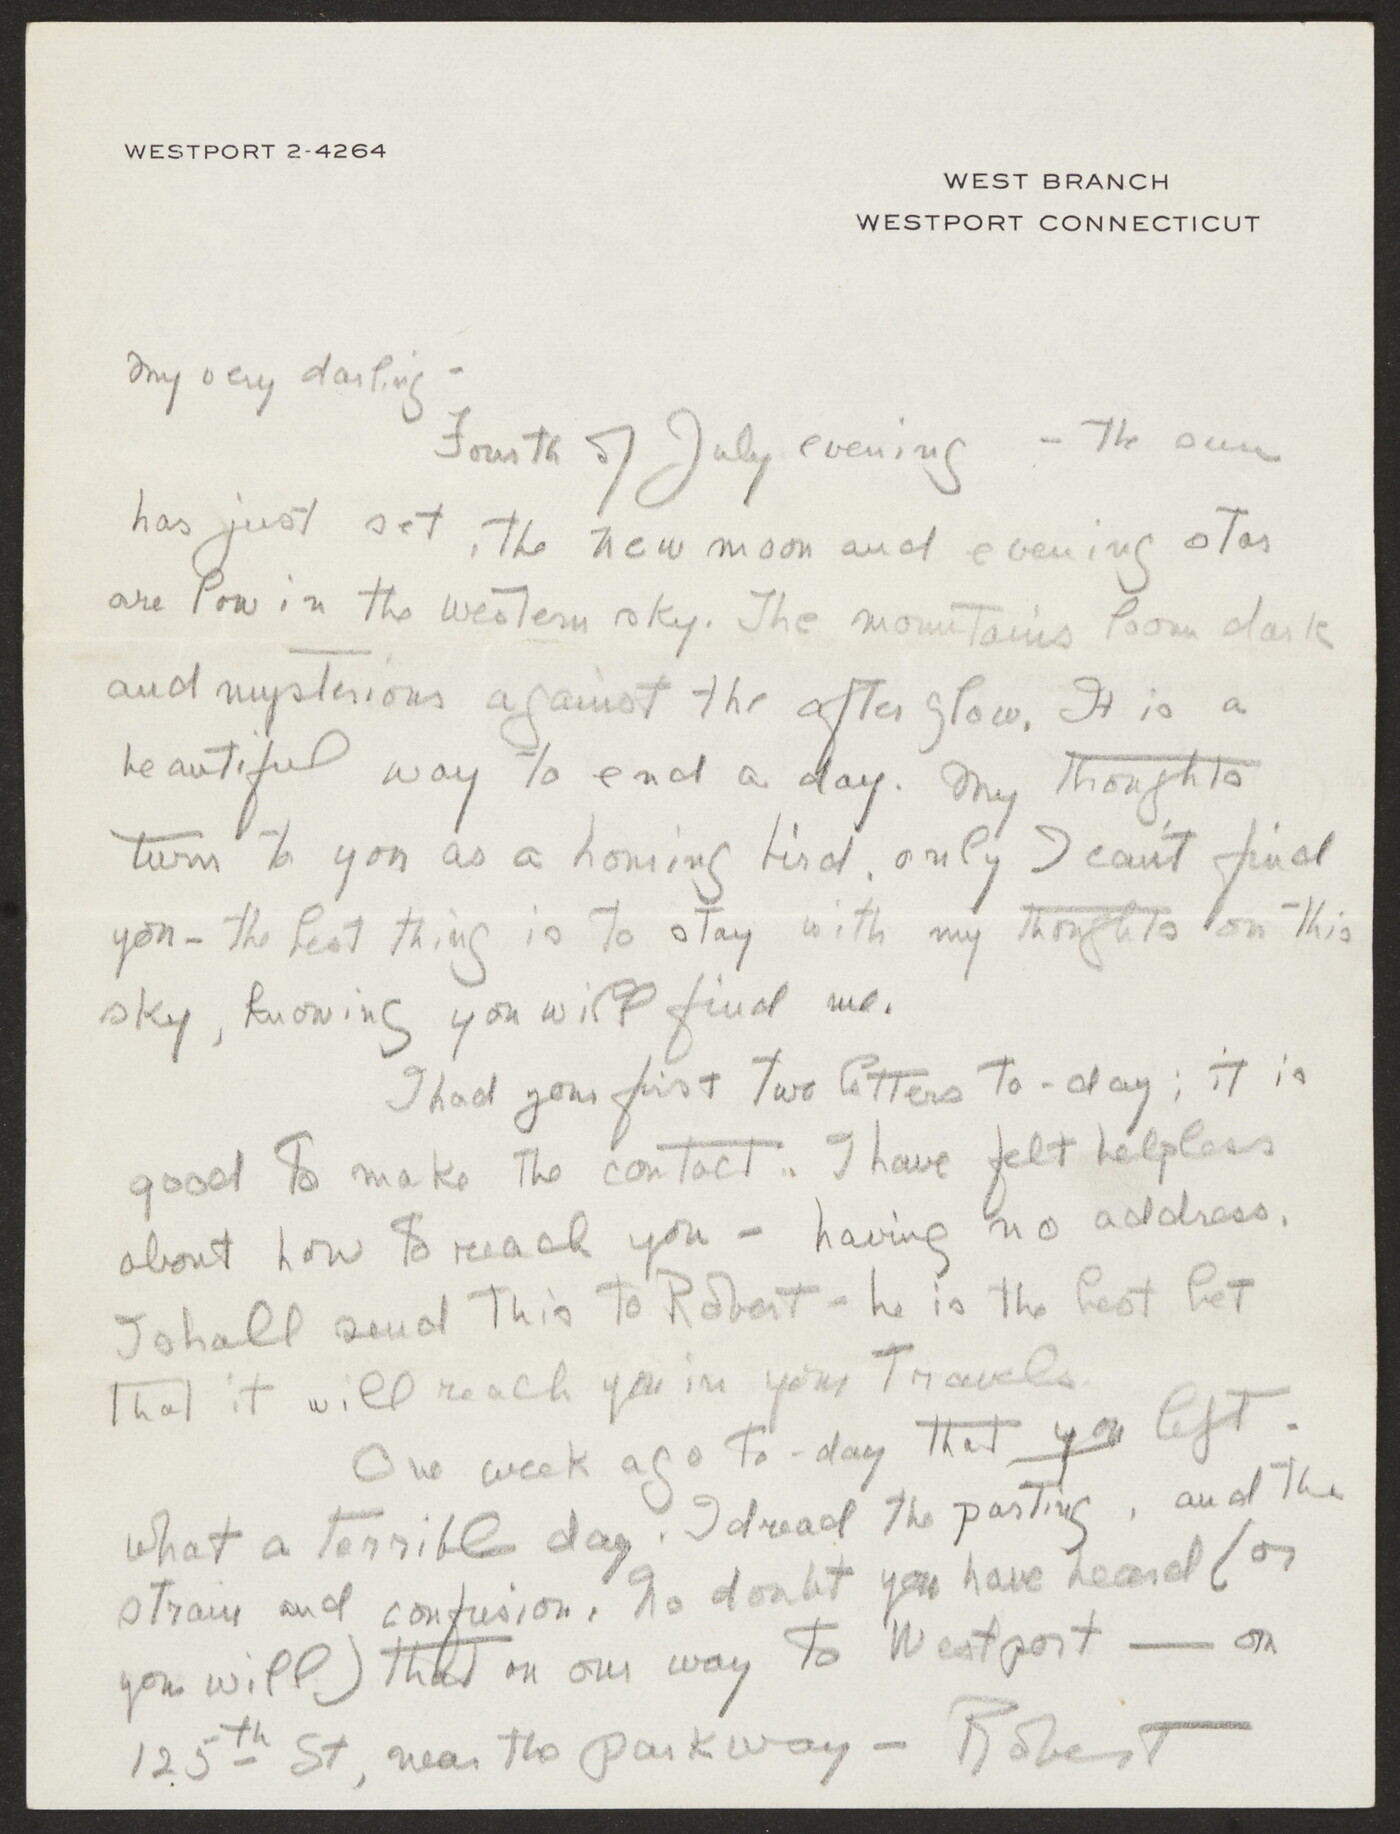 WESTPORT 2-4264
WEST BRANCH
WESTPORT CONNECTICUT
My very darling -
Fourth of July evening - the sun
has just set, the new moon and evening star
are low in the western sky. The mountains loom dark
and mysterious against the after glow. It is a
beautiful way to end a day. My thoughts
turn to you as a homing bird, only I can't find
you - the best thing is to stay with my thoughts on this
sky, knowing you will find me.
I had your first two letters to-day; it is
good to make the contact.. I have felt helpless
about how to reach you - having no address.
I shall send this to Robert - he is the best bet
that it will reach you in your travels.
One week ago to-day that you left -
what a terrible day. I dread the parting, and the
strain and confusion. No doubt you have heard (or
you will) that on our way to Westport — on
125th St, near the parkway - Robert